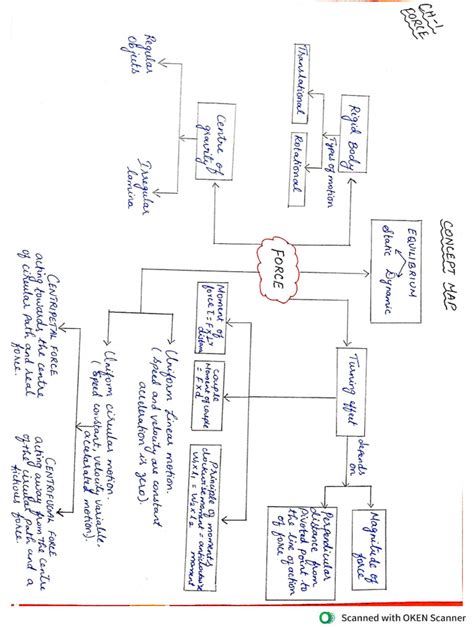 CH-1
FORCE
CONCEPT MAP
EQUILIBRIUM
Static Dynamic
Rigid Body
Types of motion
Translational
Rotational
Centre of
gravity
Regular
objects
Irregular
lamina
FORCE
Turning effect
depends
on
Magnitude of
force
Perpendicular
distance from
Pivoted point to
the line of action
of force
Moment of
couple
Moment of couple
= F×d
Principle of moments
clockwise moment = anticlockwise
moment
Uniform linear motion
(speed and velocity are constant
acceleration is zero)
Uniform circular motion.
(speed constant, velocity variable,
accelerated motion).
CENTRIPETAL FORCE
acting towards the centre
of circular path and real
force.
CENTRIFUGAL FORCE
acting away from the centre
of the circular path and a
Scanned with OKEN Scanner